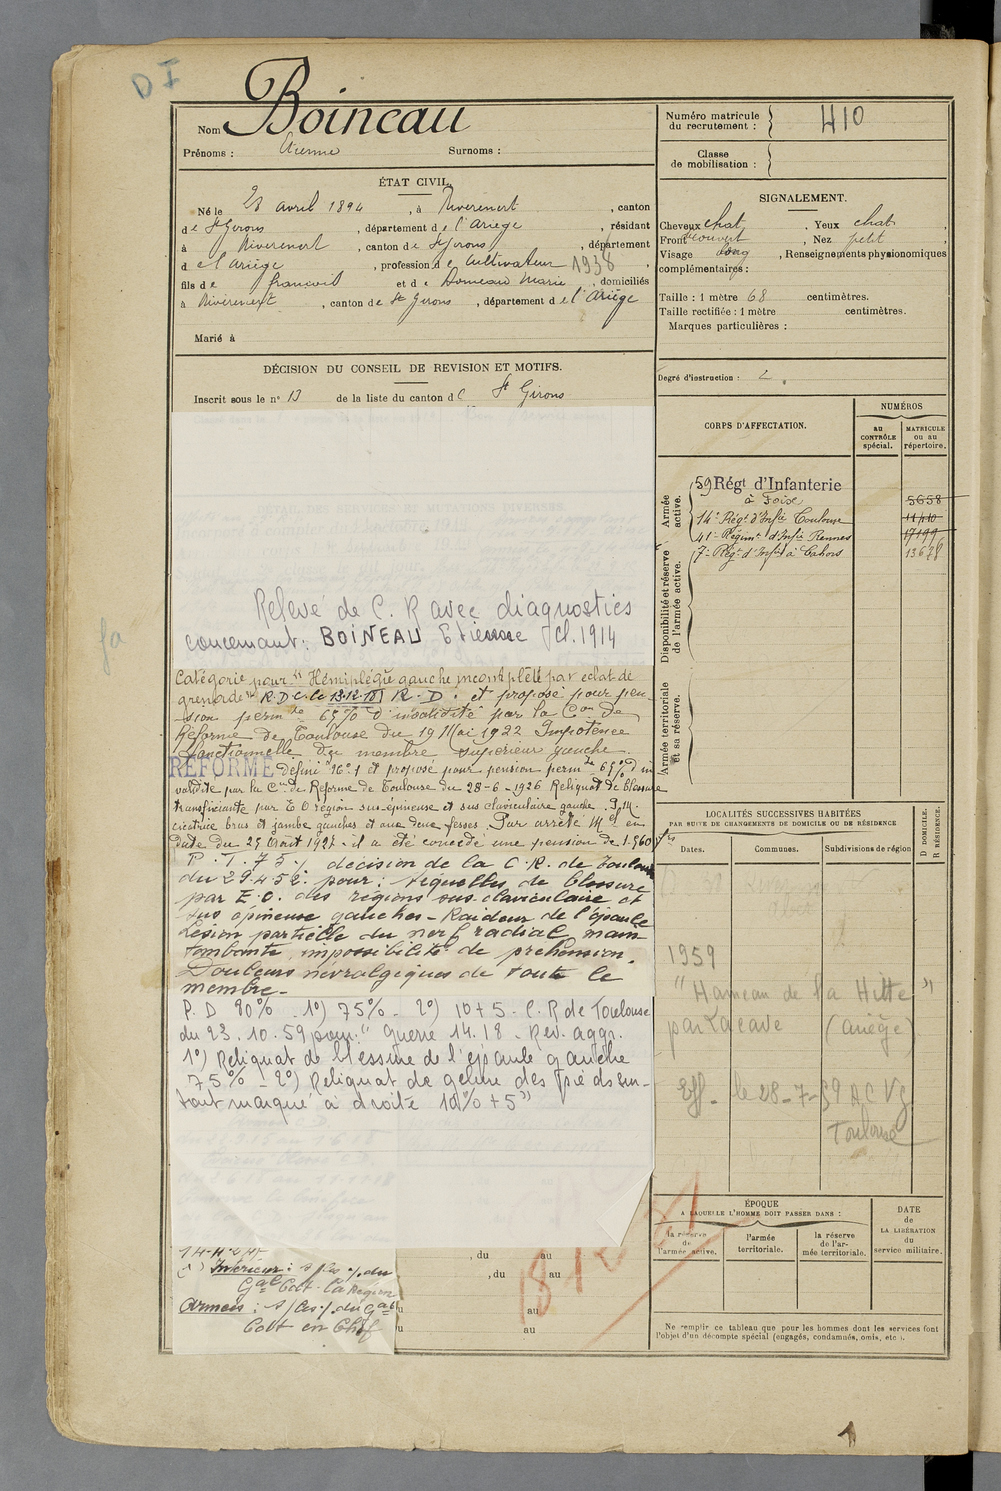 D I
Nom Boineau
Prénoms : Etienne Surnoms :
Numéro matricule
du recrutement : 410
Classe
de mobilisation :
ÉTAT CIVIL.
Né le 28 avril 1894, à Riverenert, canton
de St Girons, département de l'Ariège, résidant
à Riverenert, canton de St Girons, département
de l'Ariège, profession de Cultivateur 1938,
fils de françois et de Domeau Marie, domiciliés
à Riverenert, canton de St Girons, département de l'Ariège
Marié à
SIGNALEMENT.
Cheveux chat, Yeux chat,
Front découvert, Nez petit,
Visage long, Renseignements physionomiques
complémentaires :
Taille : 1 mètre 68 centimètres.
Taille rectifiée : 1 mètre centimètres.
Marques particulières :
Degré d'instruction : 2.
DÉCISION DU CONSEIL DE REVISION ET MOTIFS.
Inscrit sous le n° 13 de la liste du canton de St Girons
CORPS D'AFFECTATION.
NUMÉROS
AU CONTRÔLE spécial.
MATRICULE ou au répertoire.
Armée active.
59 Régt d'Infanterie
à Foix 5658
14e Régt d'Infie Toulouse 11410
41e Régimt d'Infie Rennes 17199
Disponibilité et réserve de l'armée active.
7e Régt d'Infie à Cahors 13678
Armée territoriale et sa réserve.
Relevé de C. R avec diagnostics
concernant : BOINEAU Etienne Cl. 1914
Catégorie pour "Hémiplégie gauche incomplète par éclat de
grenade" R.D.C. le 13.12.18 R.D. et proposé pour pen-
sion permte 65% d'invalidité par la Con de
Réforme de Toulouse du 19 Mai 1922 Impotence
fonctionnelle du membre supérieur gauche.
REFORMÉ Défini n° 1 et proposé pour pension permte 65% d'in
validité par la Con de Réforme de Toulouse du 28-6-1926 Reliquat de blessure
transfixiante par E O région sus-épineuse et sus claviculaire gauche.
cicatrice bras et jambe gauches et aux deux fesses. Par arrêté Mel en
date du 25 Août 1927 il a été concédé une pension de 1.560 f
P. T. 75% décision de la C.R. de Toulouse
du 29.4.52 pour : séquelles de blessure
par E.O. des régions sus-claviculaire et
sus épineuse gauches - Raideur de l'épaule
Lésion partielle du nerf radial, main
tombante, impossibilité de préhension.
Douleurs névralgiques de tout le
membre -
P. D 80% - 1°) 75% - 2°) 10+5 - C. R de Toulouse
du 23.10.59 pour : "Guerre 14.18 - Rev. aggr.
1°) Reliquat de blessure de l'épaule gauche
75% - 2°) Reliquat de gelure des pieds sur-
tout marqué à droite 10% + 5"
LOCALITÉS SUCCESSIVES HABITÉES
PAR SUITE DE CHANGEMENTS DE DOMICILE OU DE RÉSIDENCE
Dates. Communes. Subdivisions de région
D DOMICILE. R RÉSIDENCE.
1959
"Hameau de la Hitte"
par Lacave (Ariège)
Eff - le 28-7-59 A C V G
Toulouse
Intérieur : du
Gal Cdt la Région
Armées : du Gal
Cdt en Chef
, du au
, du au
au
au
ÉPOQUE
A LAQUELLE L'HOMME DOIT PASSER DANS :
la réserve de l'armée active.
l'armée territoriale.
la réserve de l'armée territoriale.
DATE
de
LA LIBÉRATION
du
service militaire.
Ne remplir ce tableau que pour les hommes dont les services font
l'objet d'un décompte spécial (engagés, condamnés, omis, etc.).
1